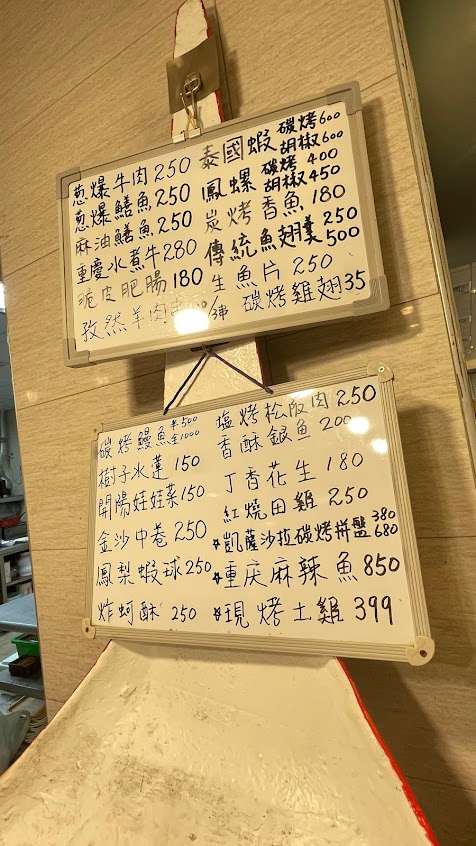 蔥爆牛肉250
蔥爆鱔魚250
麻油鱔魚250
重慶水煮牛280
脆皮肥腸180
孜然羊肉串 /3串
泰國蝦 碳烤600
胡椒600
鳳螺 碳烤400
胡椒450
炭烤香魚180
傳統魚翅羹250
500
生魚片250
碳烤雞翅35
碳烤鰻魚半500
全1000
樹子水蓮150
開陽娃娃菜150
金沙中卷250
鳳梨蝦球250
炸蚵酥250
塩烤松阪肉250
香酥銀魚200
丁香花生180
紅燒田雞250
☆凱薩沙拉碳烤拼盤380
680
☆重庆麻辣魚850
☆現烤土雞399